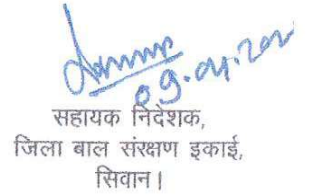 09.04.202
सहायक निदेशक,
जिला बाल संरक्षण इकाई,
सिवान।